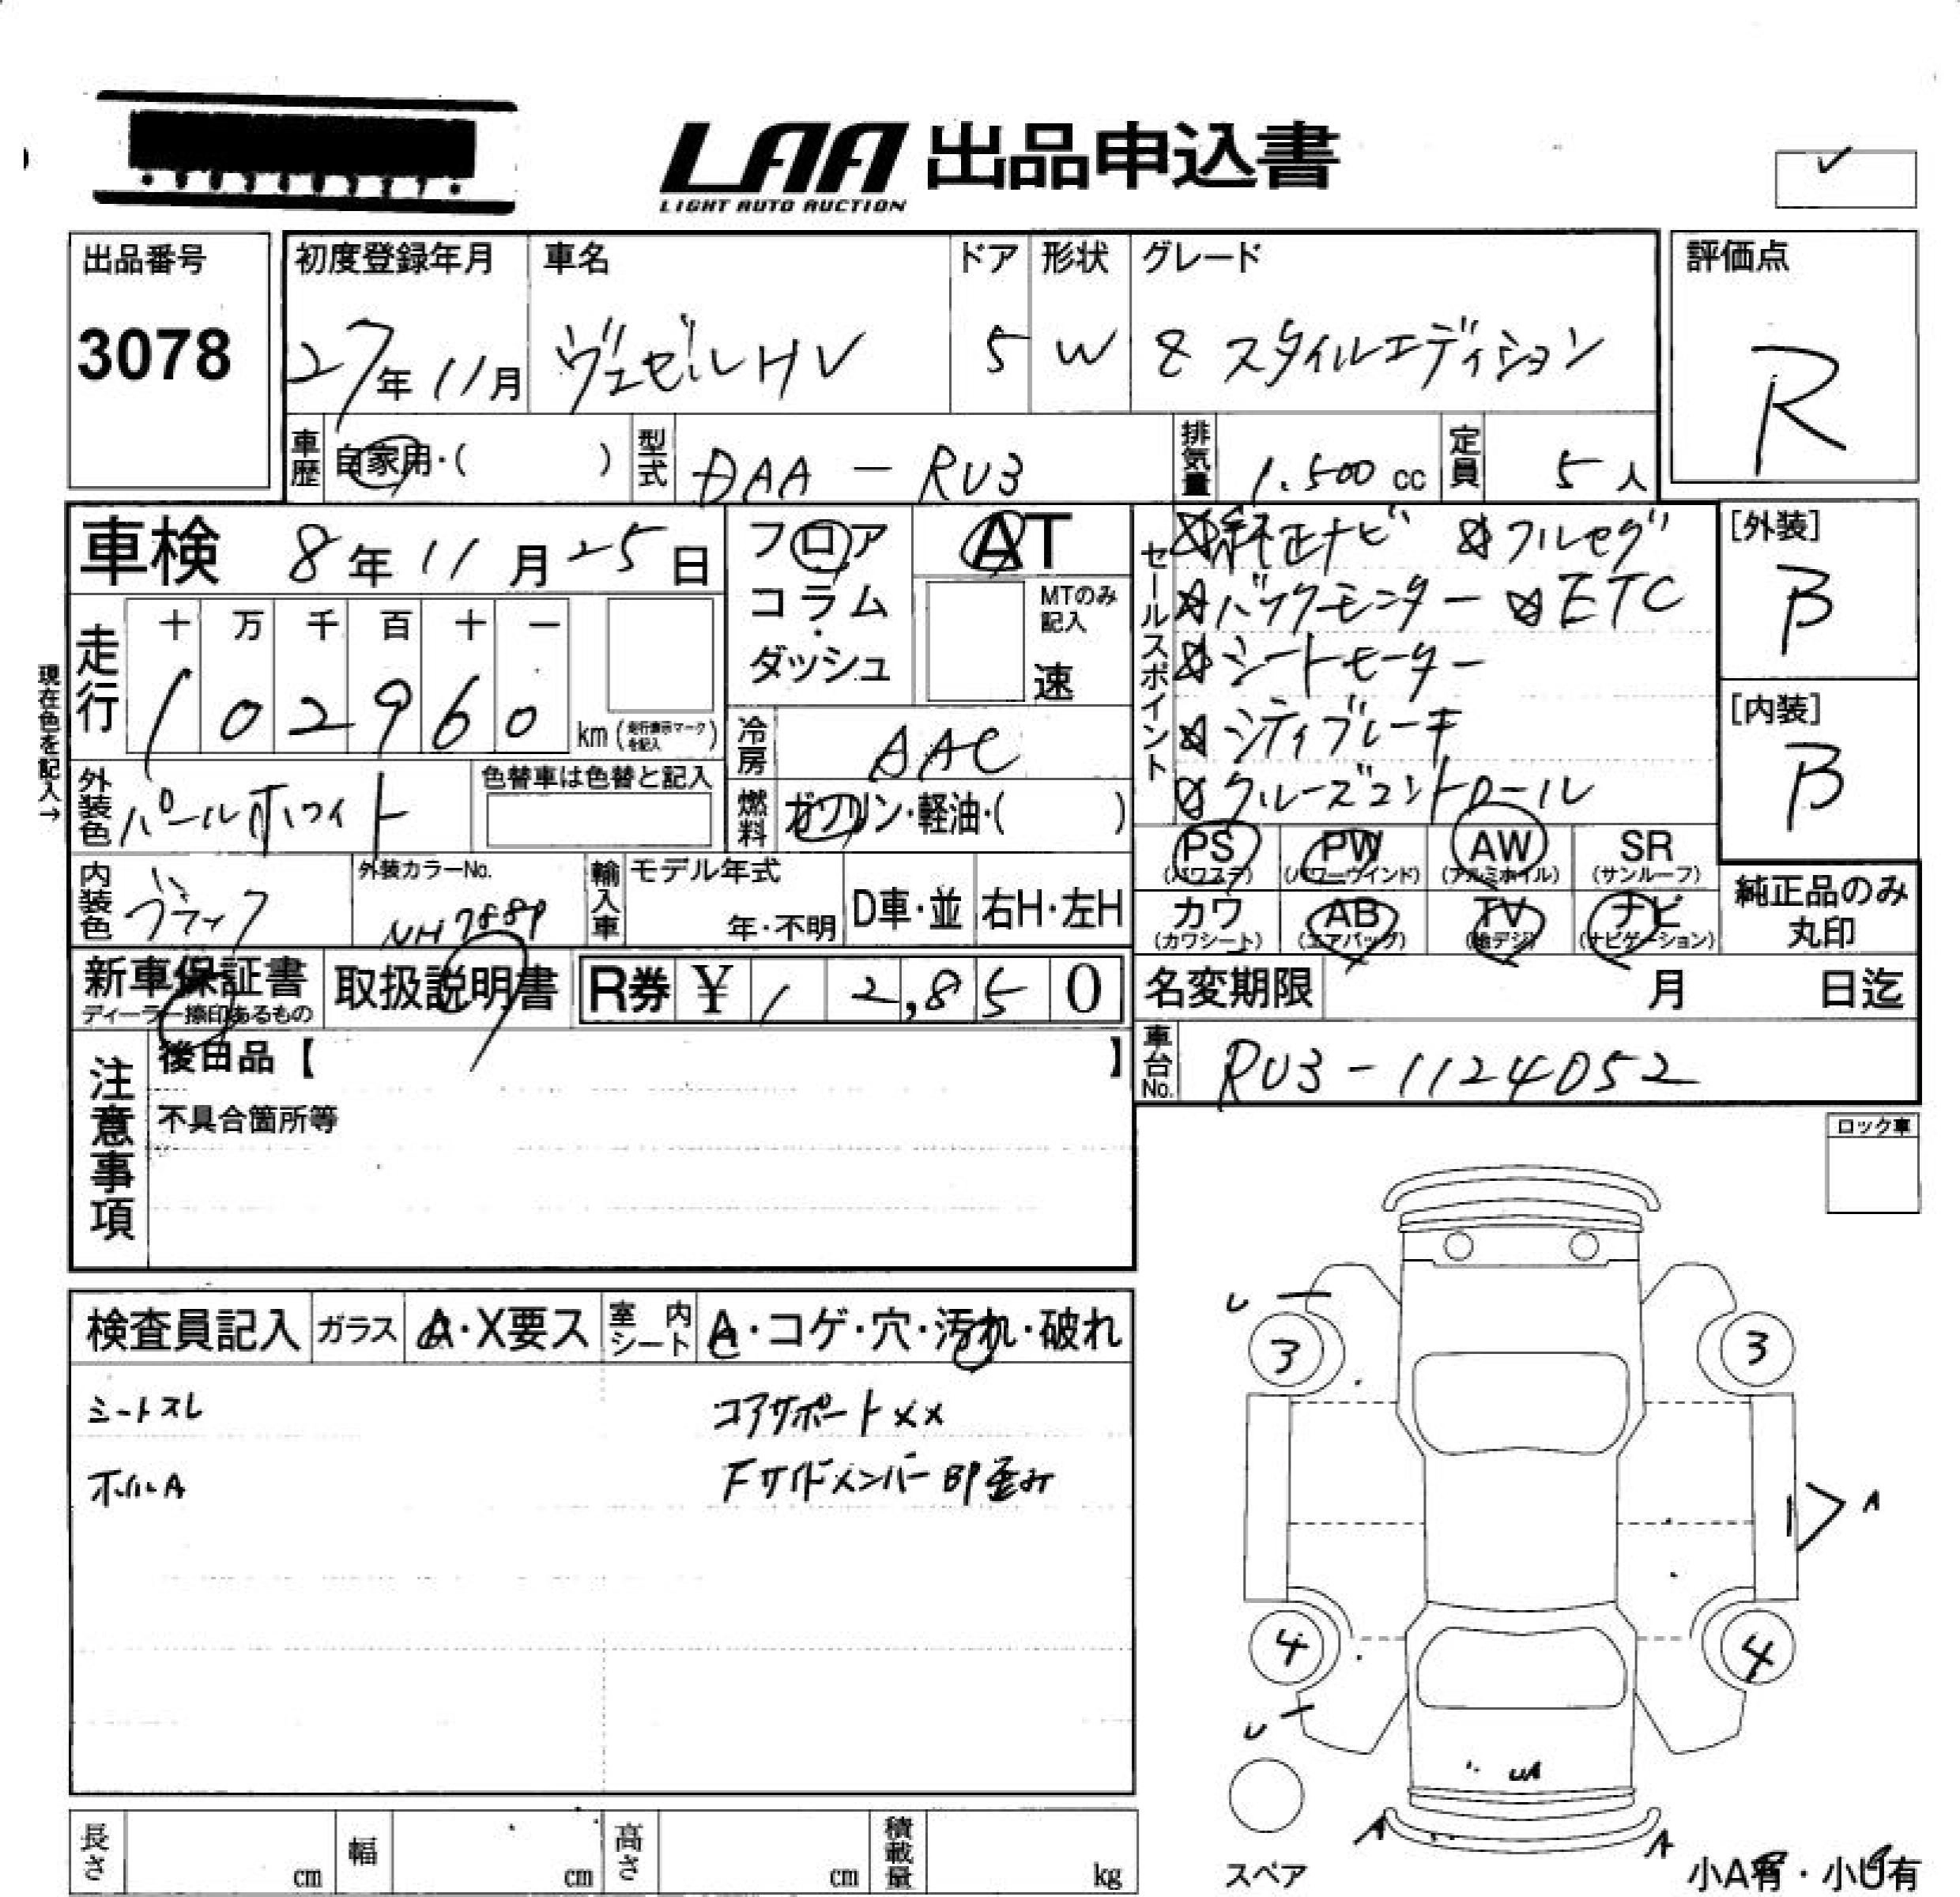 LAA 出品申込書
LIGHT AUTO AUCTION
出品番号
3078
初度登録年月
27年11月
車名
ヴェゼルHV
ドア
5
形状
W
グレード
スタイルエディション
評価点
R
車歴
自家用・( )
型式
DAA-RU3
排気量
1.500 cc
定員
5人
車検 8年11月25日
フロア
コラム
・
ダッシュ
AT
MTのみ
記入
速
セールスポイント
☆純正ナビ ☆フルセグ
☆バックモニター ☆ETC
☆シートモーター
☆シティブレーキ
☆クルーズコントロール
[外装]
B
[内装]
B
現在色を記入→
走行
十 万 千 百 十 一
1 0 2 9 6 0 km (走行表示マークを記入)
冷房
AAC
外装色
パールホワイト
色替車は色替と記入
燃料
ガソリン・軽油・( )
PS
(パワステ)
PW
(パワーウインド)
AW
(アルミホイル)
SR
(サンルーフ)
カワ
(カワシート)
AB
(エアバッグ)
TV
(地デジ)
ナビ
(ナビゲーション)
純正品のみ
丸印
内装色
ブラック
外装カラーNo.
NH788P
輸入車
モデル年式
年・不明
D車・並
右H・左H
新車保証書
ディーラー捺印あるもの
取扱説明書
R券 ¥ 1 2,8 5 0
名変期限 月 日迄
車台No.
RU3-1124052
注意事項
後日品【 】
不具合箇所等
ロック車
検査員記入
ガラス
A・X要ス
室内シート
A・コゲ・穴・汚れ・破れ
シートスレ
コアサポートXX
ホイルA
Fサイドメンバー BP歪み
U
3
3
A
4
4
U
A
A
スペア
小A有・小U有
長さ cm
幅 cm
高さ cm
積載量 kg